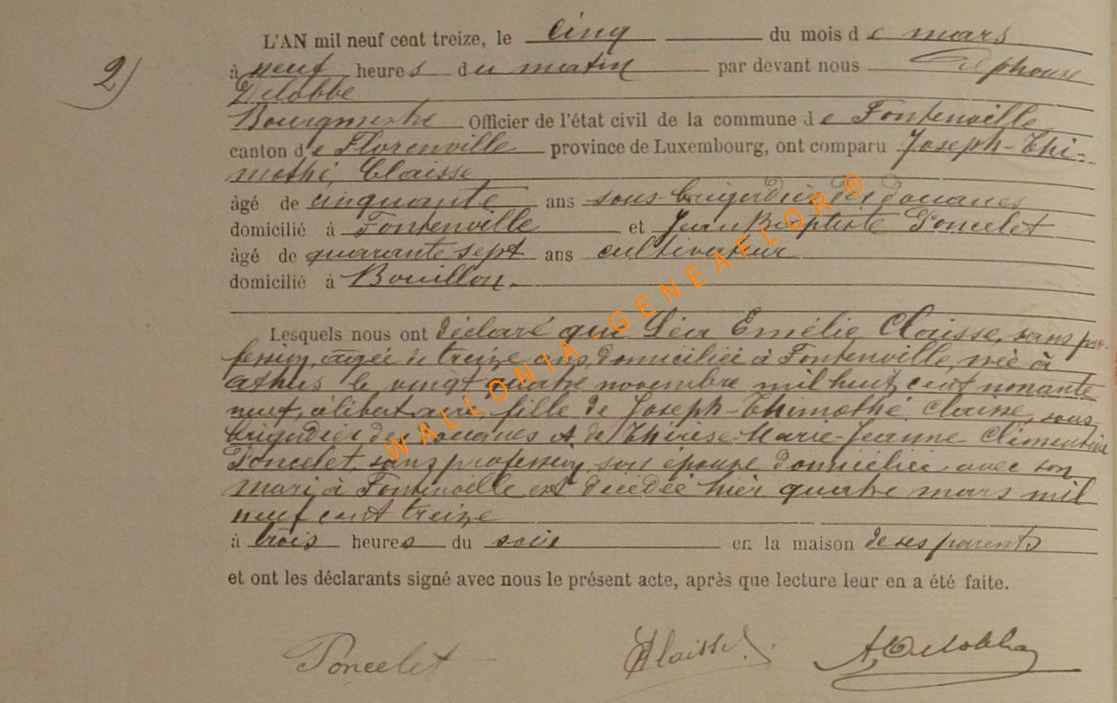 L'AN mil neuf cent treize, le cinq du mois de mars
2) à neuf heures du matin par devant nous Alphonse
Delobbe
Bourgmestre Officier de l'état civil de la commune de Fontenoille
canton de Florenville province de Luxembourg, ont comparu Joseph-Thi=
mothé Claisse
âgé de cinquante ans sous-brigadier des douanes
domicilié à Fontenoille et Jean Baptiste Poncelet
âgé de quarante sept ans cultivateur
domicilié à Bouillon.
Lesquels nous ont déclaré que Léa Emélie Claisse, sans pro-
fession, agée de treize ans, domiciliée à Fontenoille, née à
Athus le vingt quatre novembre mil huit cent nonante
neuf, célibataire, fille de Joseph-Thimothé Claisse, sous
brigadier des douanes & de Thérèse-Marie-Jeanne Clémentine
Poncelet, sans profession, son épouse domiciliée avec son
mari à Fontenoille est décédée hier quatre mars mil
neuf cent treize
à trois heures du soir en la maison de ses parents
et ont les déclarants signé avec nous le présent acte, après que lecture leur en a été faite.
Poncelet Claisse A, Delobbe
WALLONIA-GENEAFLOR®